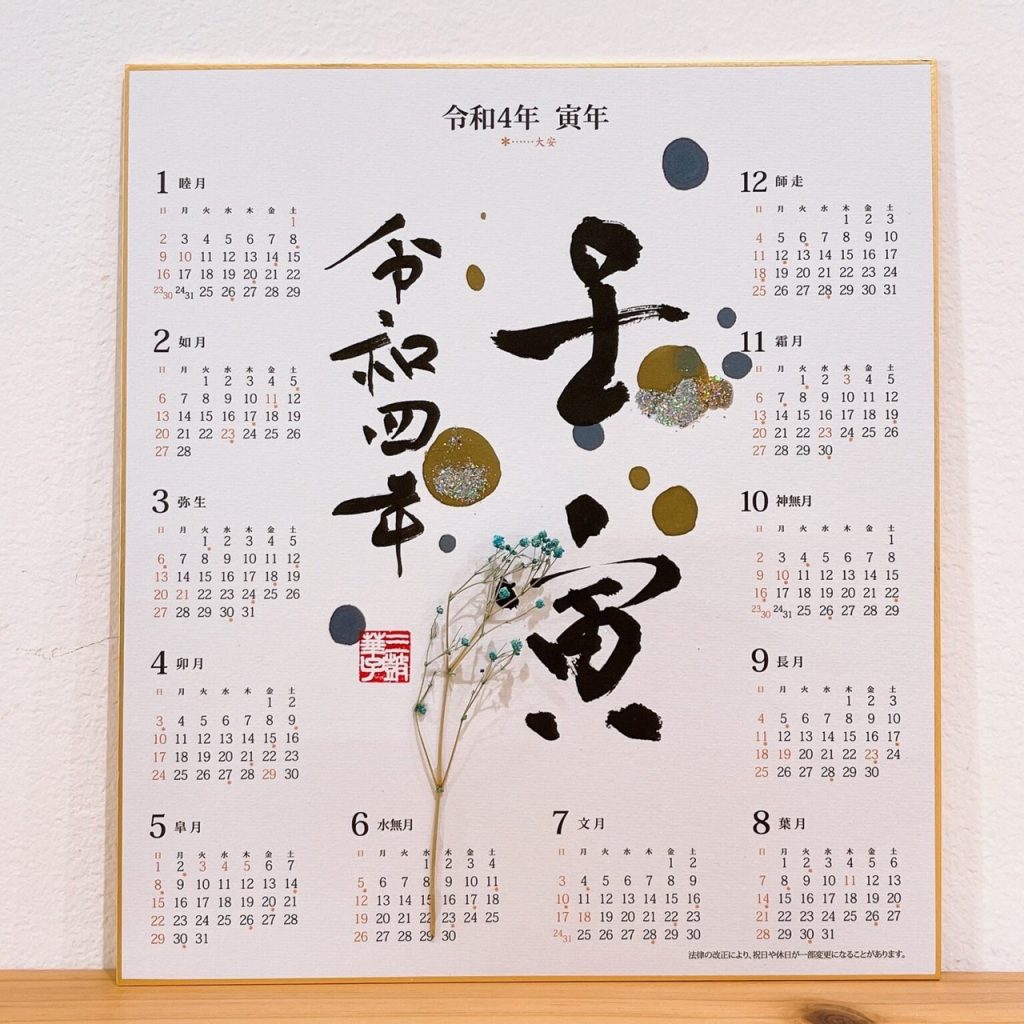 令和4年 寅年
*……大安
壬寅
令和四年
1 睦月
日 月 火 水 木 金 土
1
2 3 4 5 6 7 8
9 10 11 12 13 14 15
16 17 18 19 20 21 22
23/30 24/31 25 26 27 28 29
2 如月
日 月 火 水 木 金 土
1 2 3 4 5
6 7 8 9 10 11 12
13 14 15 16 17 18 19
20 21 22 23 24 25 26
27 28
3 弥生
日 月 火 水 木 金 土
1 2 3 4 5
6 7 8 9 10 11 12
13 14 15 16 17 18 19
20 21 22 23 24 25 26
27 28 29 30 31
4 卯月
日 月 火 水 木 金 土
1 2
3 4 5 6 7 8 9
10 11 12 13 14 15 16
17 18 19 20 21 22 23
24 25 26 27 28 29 30
5 皐月
日 月 火 水 木 金 土
1 2 3 4 5 6 7
8 9 10 11 12 13 14
15 16 17 18 19 20 21
22 23 24 25 26 27 28
29 30 31
6 水無月
日 月 火 水 木 金 土
1 2 3 4
5 6 7 8 9 10 11
12 13 14 15 16 17 18
19 20 21 22 23 24 25
26 27 28 29 30
7 文月
日 月 火 水 木 金 土
1 2
3 4 5 6 7 8 9
10 11 12 13 14 15 16
17 18 19 20 21 22 23
24/31 25 26 27 28 29 30
8 葉月
日 月 火 水 木 金 土
1 2 3 4 5 6
7 8 9 10 11 12 13
14 15 16 17 18 19 20
21 22 23 24 25 26 27
28 29 30 31
9 長月
日 月 火 水 木 金 土
1 2 3
4 5 6 7 8 9 10
11 12 13 14 15 16 17
18 19 20 21 22 23 24
25 26 27 28 29 30
10 神無月
日 月 火 水 木 金 土
1
2 3 4 5 6 7 8
9 10 11 12 13 14 15
16 17 18 19 20 21 22
23/30 24/31 25 26 27 28 29
11 霜月
日 月 火 水 木 金 土
1 2 3 4 5
6 7 8 9 10 11 12
13 14 15 16 17 18 19
20 21 22 23 24 25 26
27 28 29 30
12 師走
日 月 火 水 木 金 土
1 2 3
4 5 6 7 8 9 10
11 12 13 14 15 16 17
18 19 20 21 22 23 24
25 26 27 28 29 30 31
法律の改正により、祝日や休日が一部変更になることがあります。